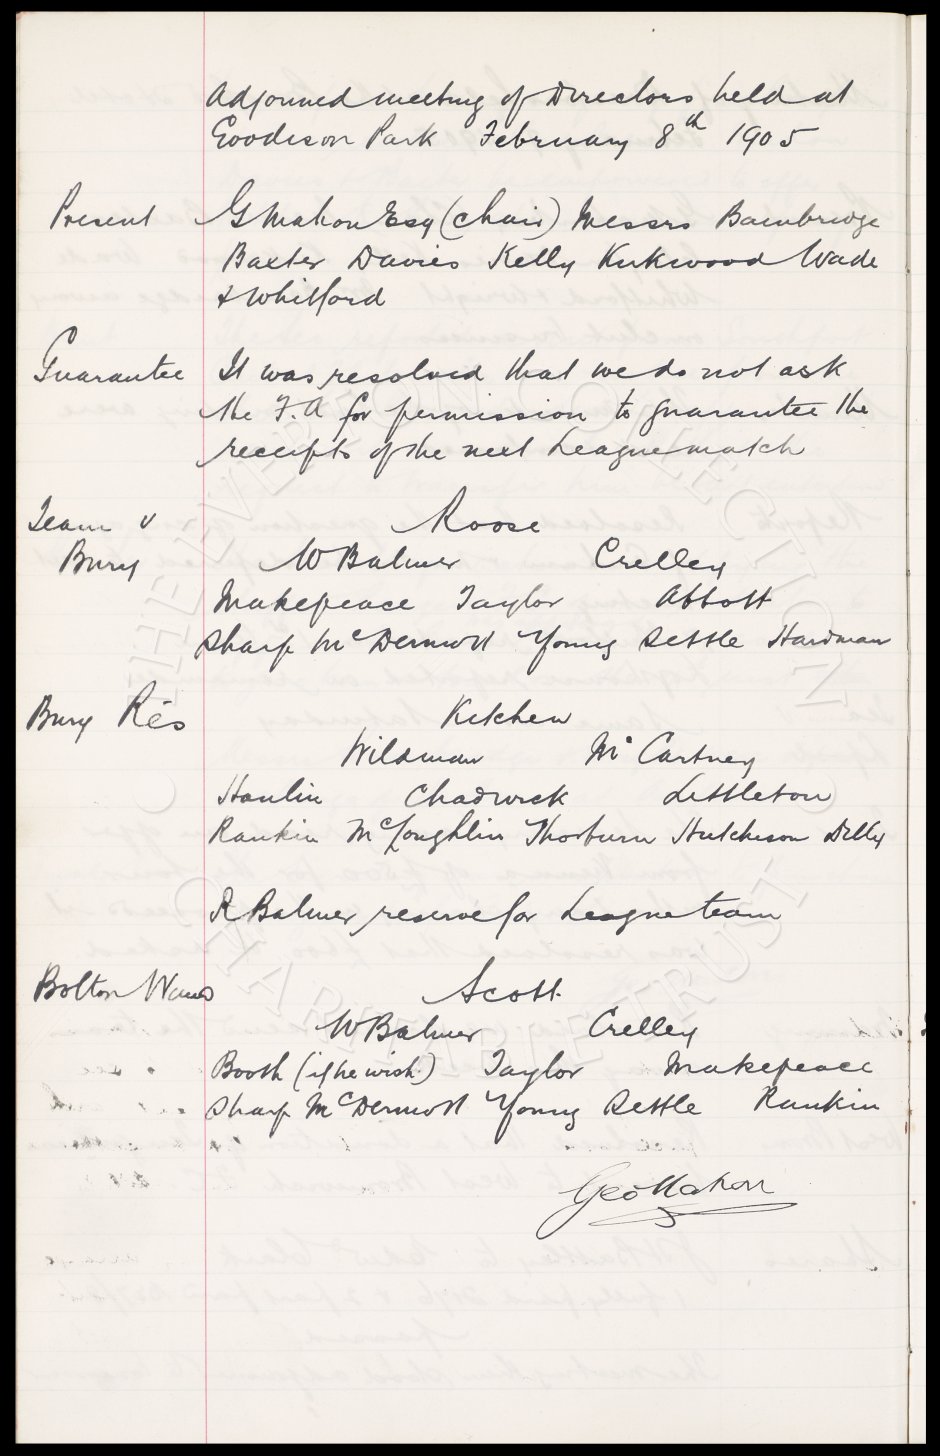 Adjourned meeting of Directors held at
Goodison Park February 8th 1905
Present G Mahon Esq (chair) Messrs Bainbridge
Baxter Davies Kelly Kirkwood Wade
& Whitford
Guarantee It was resolved that we do not ask
the F.A for permission to guarantee the
receipts of the next League match
Team v Roose
Bury W Balmer Crelley
Makepeace Taylor Abbott
Sharp McDermott Young Settle Hardman
Bury Res Kitchen
Wildman McCartney
Hanlin Chadwick Littleton
Rankin McLoughlin Thorburn Hutchison Dilly
R Balmer reserve for League team
Bolton Wans Scott
W Balmer Crelley
Booth (if he wish) Taylor Makepeace
Sharp McDermott Young Settle Rankin
Geo Mahon
THE EVERTON COLLECTION
CHARITABLE TRUST